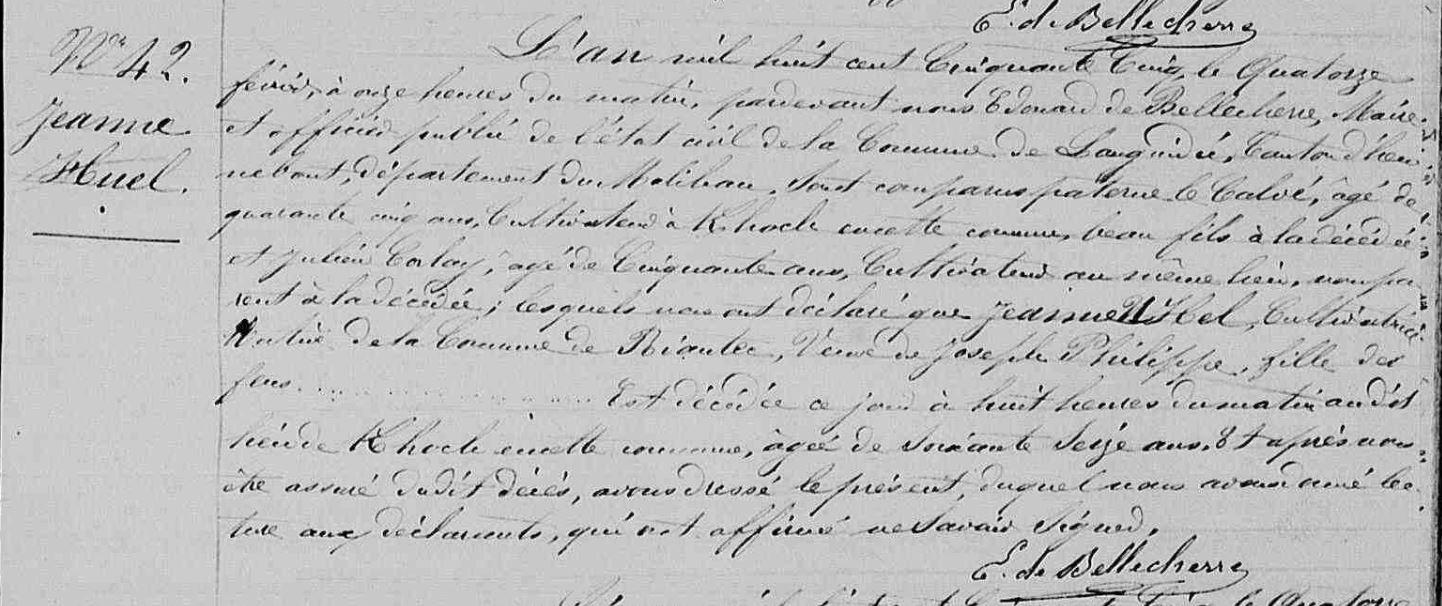 E. de Bellecherre
N° 42.
Jeanne
Huel.
L'an mil huit cent Cinquante Cinq, le Quatorze
février, à onze heures du matin, pardevant nous Edouard de Bellecherre, Maire
et officier public de l'état civil de la Commune de Languidic, Canton d'hen
nebont, département du Morbihan, Sont comparus paterne le Calvé, âgé de
quarante cinq ans, Cultivateur à Khoch en cette commune, beau fils à la décédée
et Julien Corlay, âgé de Cinquante ans, Cultivateur au même lieu, non pa
rent à la décédée; lesquels nous ont déclaré que Jeanne Cultivatrice
Native de la Commune de Riantec, Veuve de Joseph Philippe, fille des
feus .................... Est décédée ce jour à huit heures du matin au dit
lieu de Khoch en cette commune, âgée de Soixante Seize ans. Et après nous
être assuré dudit décès, avons dressé le présent, duquel nous avons donné lec
ture aux déclarants, qui ont affirmé ne Savoir Signer.
E. de Bellecherre